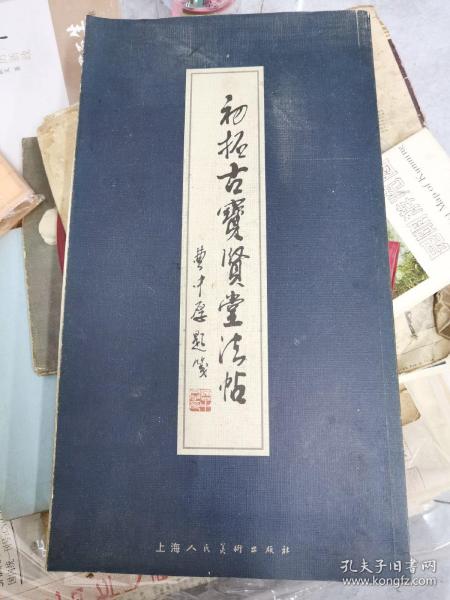 初拓古寶賢堂法帖
曹中厚題箋
上海人民美術出版社
Map of Kunming
孔夫子旧书网
www.kongfz.com